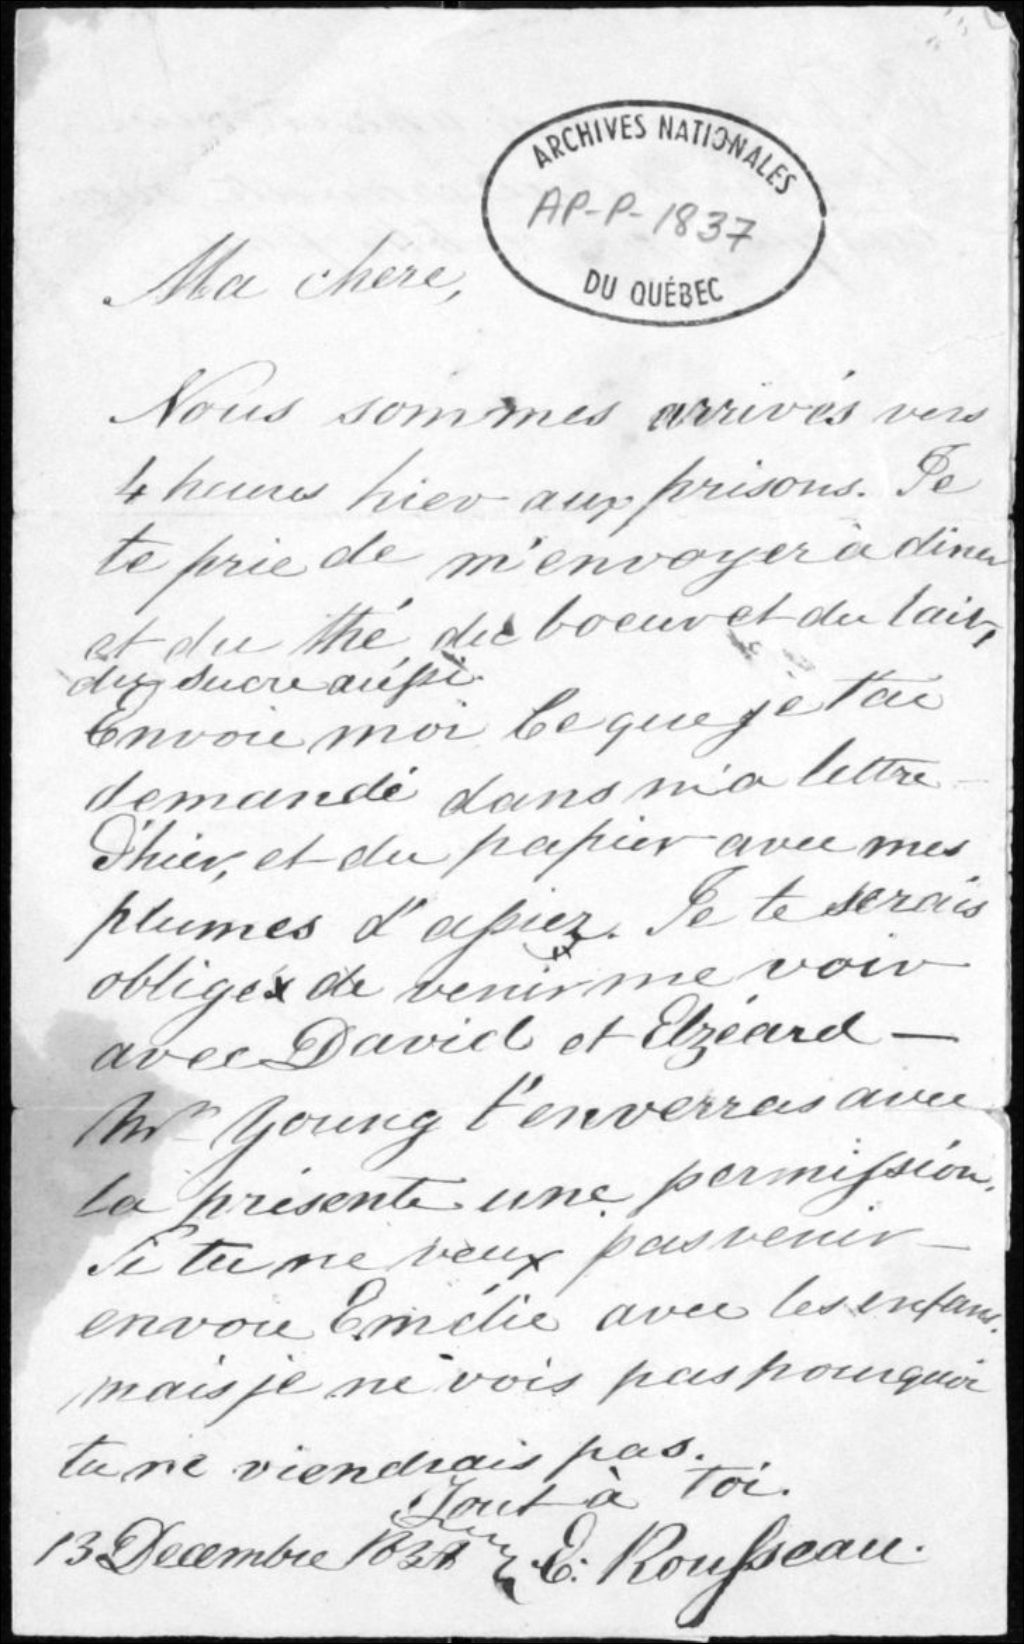 ARCHIVES NATIONALES
AP-P-1837
DU QUÉBEC
Ma chere,
Nous sommes arrivés vers
4 heures hier aux prisons. Je
te prie de m'envoyer à diner
et du thé du boeuf et du lait,
du sucre aussi.
Envoie moi ce que je t'ai
demandé dans ma lettre
d'hier, et du papier avec mes
plumes d'acier. Je te serais
obligé de venir me voir
avec David et Elzéard —
Mr Young t'enverras avec
la présente une permission.
Si tu ne veux pas venir —
envoie Emélie avec les enfans.
mais je ne vois pas pourquoi
tu ne viendrais pas.
Tout à toi.
13 Decembre E. Rousseau.